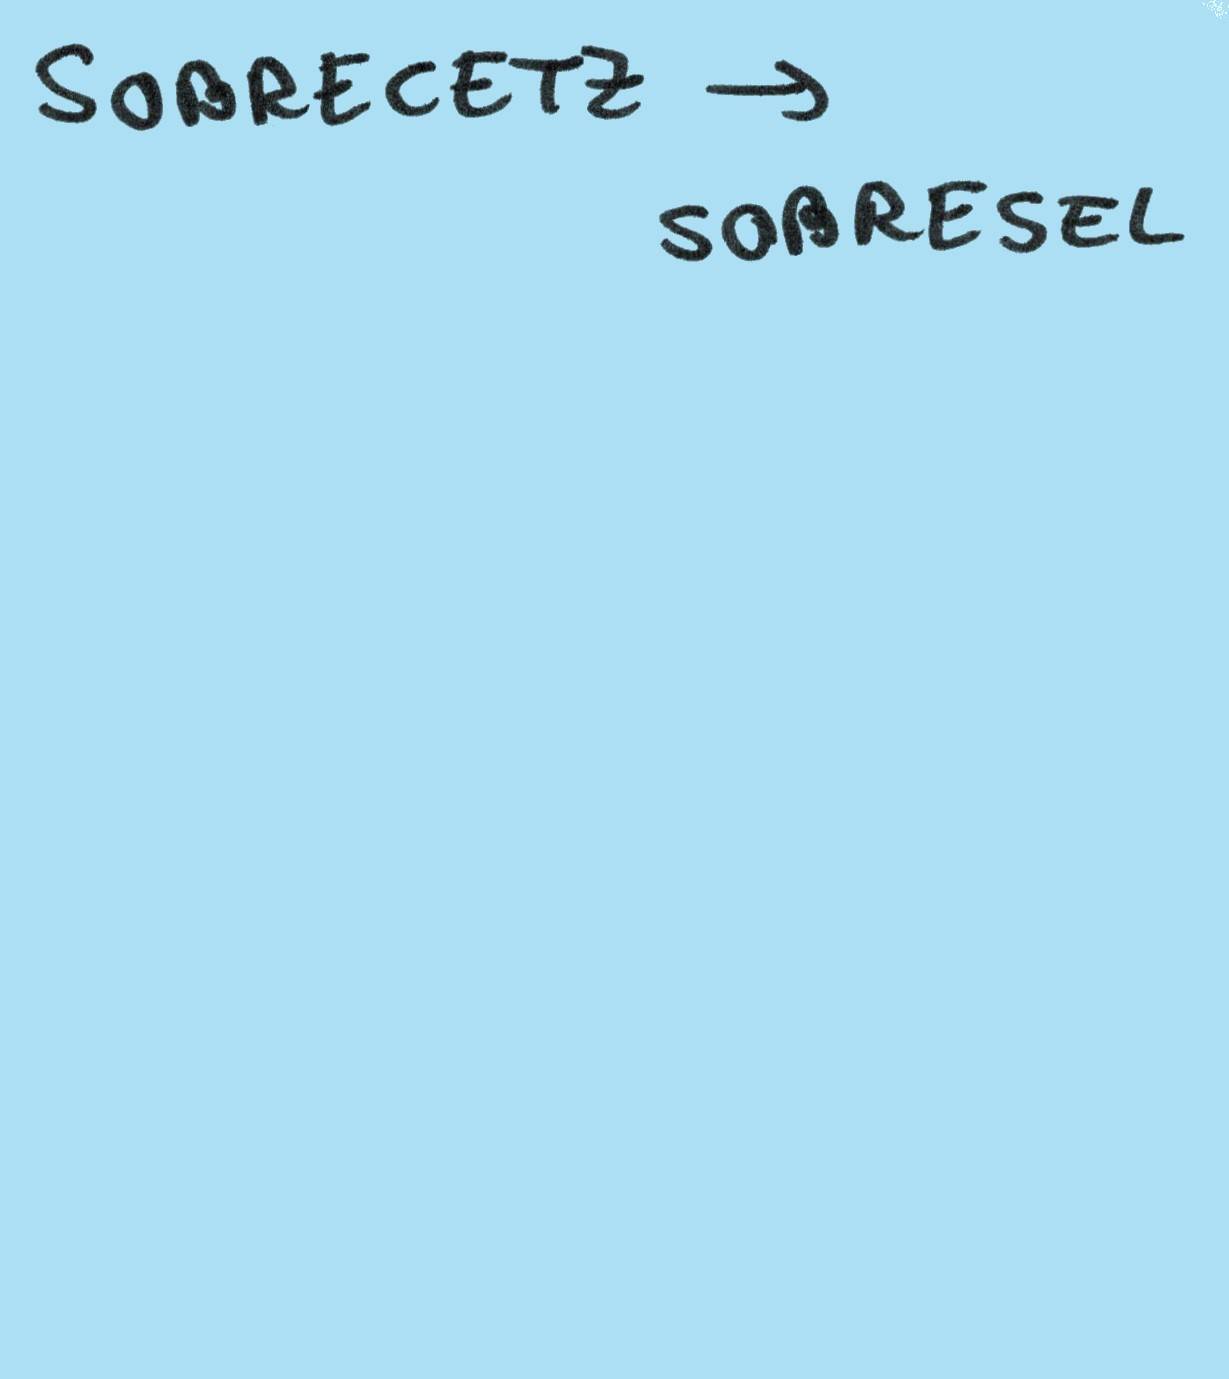 SOBRECETZ →
SOBRESEL